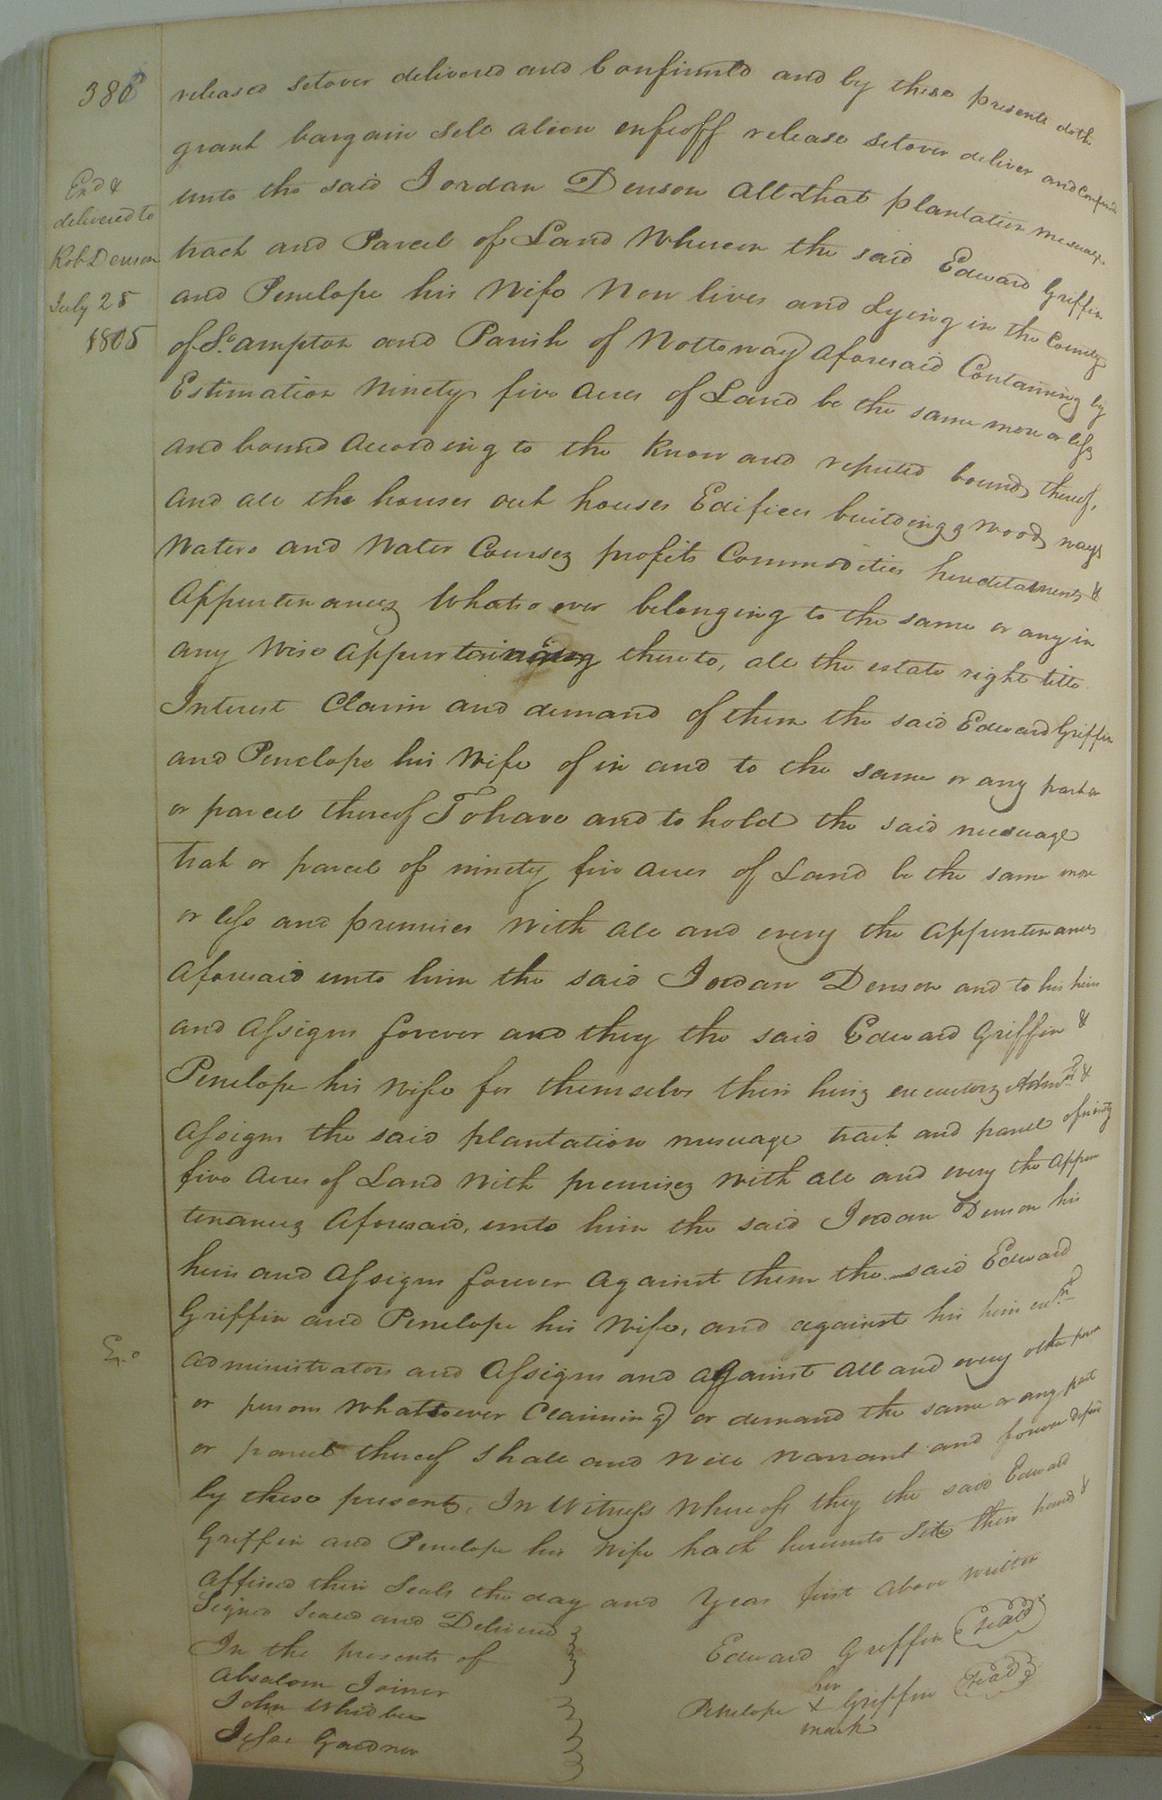 380
Exd &
delivered to
Rob Denson
July 25
1805
released setover delivered and Confirmed and by these presents doth
grant bargain sele alien enfeoff release setover deliver and confirm
unto the said Jordan Denson all that plantation messuage
tract and Parcel of Land Wherein the said Edward Griffin
and Penelope his Wife Now lives and Lying in the County
of So.ampton and Parish of Nottoway aforesaid Containing by
Estimation Ninety five acres of Land be the same more or less
and bound according to the Know and reputed bounds thereof,
and all the houses out houses Edifices buildings woods ways
Waters and Water Courses profits Commodities hereditaments &
Appurtenances Whatsoever belonging to the same or any in
any Wise appurtaining thereto, all the estate right title
Interest Claim and demand of them the said Edward Griffin
and Penelope his Wife of in and to the same or any part or
or parcel thereof To have and to hold the said messuage
trak or parcel of ninety five acres of Land be the same more
or less and premises with all and every the appurtenances
aforesaid unto him the said Jordan Denson and to his heirs
and assigns forever and they the said Edward Griffin &
Penelope his Wife for themselves their heirs executors Admrs &
assigns the said plantation messuage tract and parcel of ninety
five acres of Land with premises with all and every the appur
tenances aforesaid, unto him the said Jordan Denson his
heirs and assigns forever against them the said Edward
Griffin and Penelope his Wife, and against his heirs exrs
Exd
administrators and assigns and against all and every other person
or persons whatsoever Claiming or demand the same or any part
or parcel thereof shall and will warrant and forever defend
by these presents. In Witness Whereof they the said Edward
Griffin and Penelope his Wife hath hereunto Sett their hands &
affixed their Seals the day and Year first above written
Signed Sealed and Delivered
In the presents of
Edward Griffin (seal)
Absalom Joiner
her
Penelope X Griffin (seal)
mark
John Whidbee
Jesse Gardner